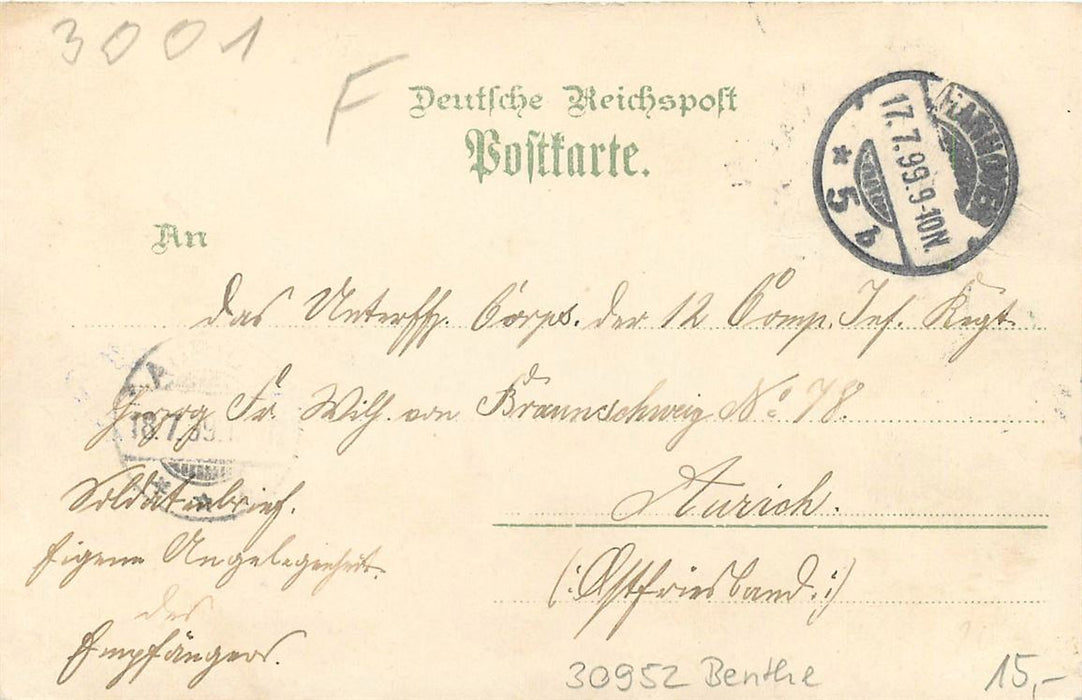 3001
F
Deutsche Reichspost
Postkarte.
HANNOVER
17.7.99.9-10N.
* 5 b
An
das Unteroff. Corps. der 12 Comp. Inf. Regt.
Herzog Fr. Wilh. von Braunschweig No 78.
18.7.99.
Aurich.
(:Ostfriesland.:)
Soldatenbrief.
Eigene Angelegenheit
des
Empfängers.
30952 Benthe
15,-